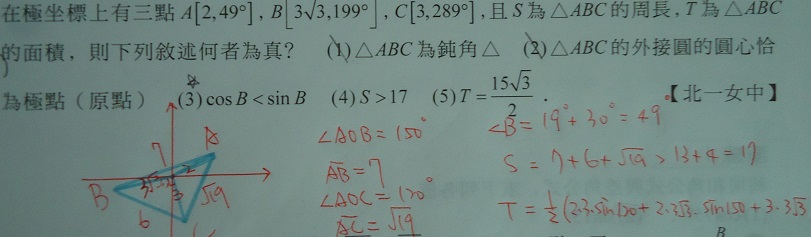 在極坐標上有三點A[2,49°],B[3√3,199°],C[3,289°],且S為△ABC的周長,T為△ABC
的面積,則下列敘述何者為真? (1)△ABC為鈍角△ (2)△ABC的外接圓的圓心恰
為極點(原點) (3)cosB<sinB (4)S>17 (5)T=15√3/2. 【北一女中】
∠AOB=150°
AB=7
∠AOC=120°
AC=√19
∠B=19°+30°=49°
S=7+6+√19>13+4=17
T=1/2(2·3·sin120+2·3√3·sin150+3·3√3
A
7
2
B
3
6
√19
B